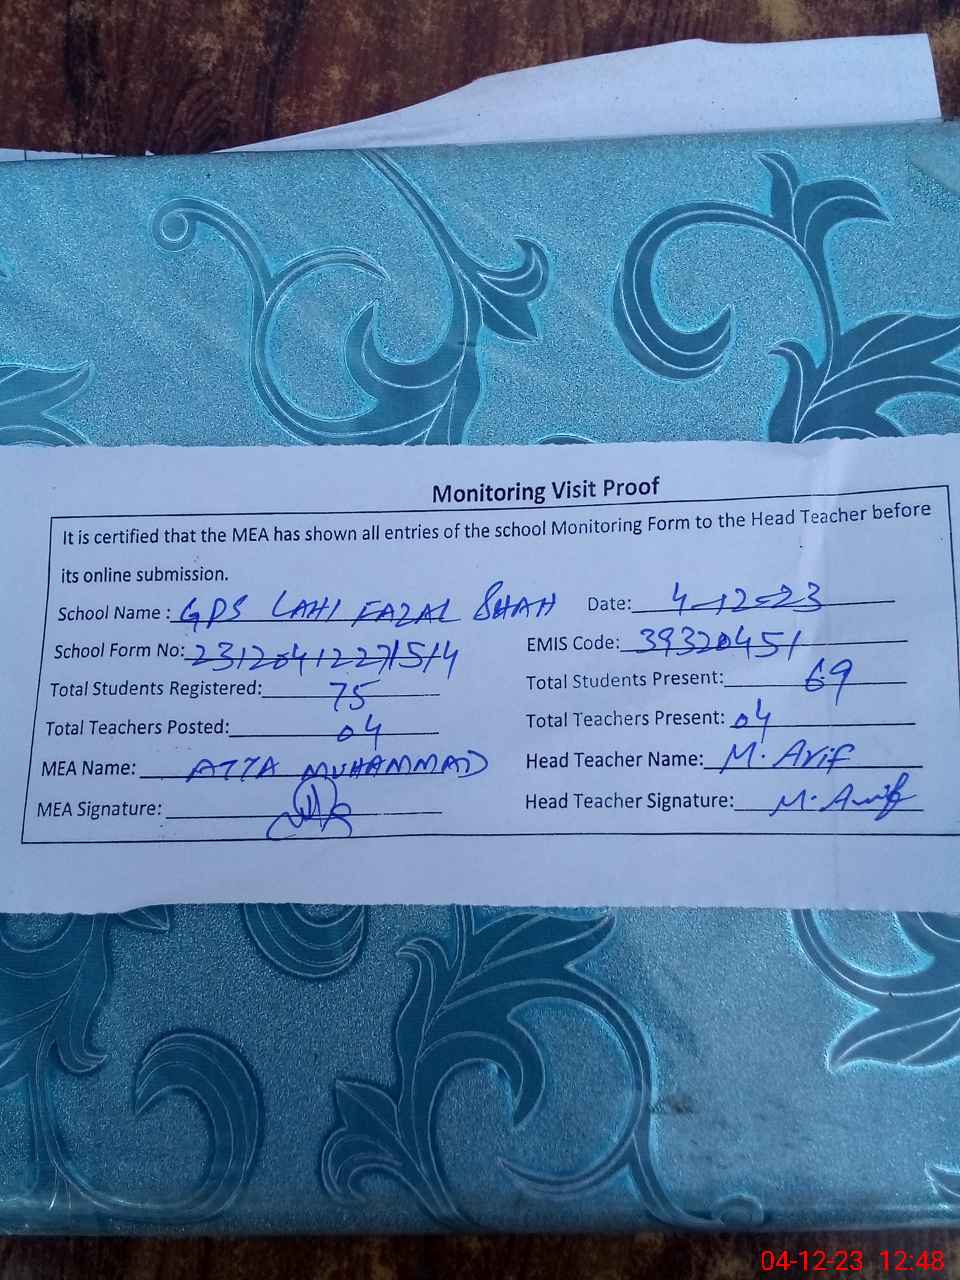 Monitoring Visit Proof
It is certified that the MEA has shown all entries of the school Monitoring Form to the Head Teacher before
its online submission.
School Name : GPS LAHI FAZAL SHAH Date: 4-12-23
School Form No: 23120412271514 EMIS Code: 39320451
Total Students Registered: 75 Total Students Present: 69
Total Teachers Posted: 04 Total Teachers Present: 04
MEA Name: ATTA MUHAMMAD Head Teacher Name: M. Arif
MEA Signature: Head Teacher Signature: M. Arif
04-12-23 12:48